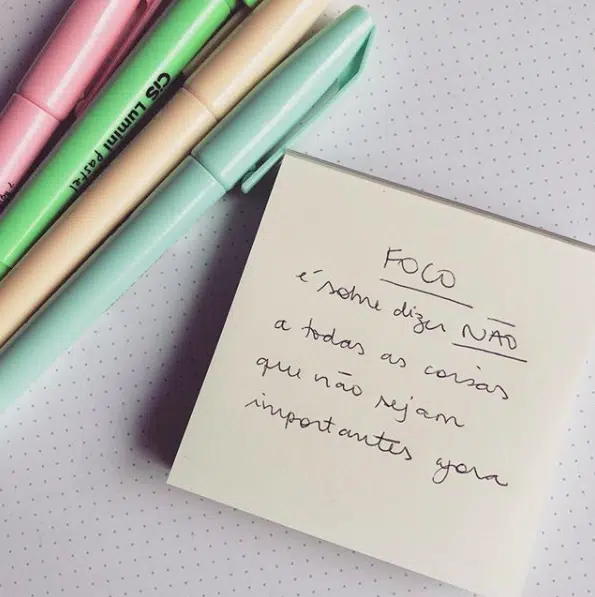 CiS Lumini Pastel
FOCO
é sobre dizer NÃO
a todas as coisas
que não sejam
importantes gora